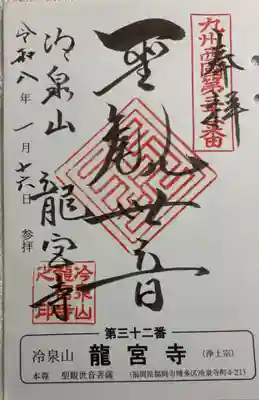 奉拝
九州西国第三十二番
聖観世音
冷泉山
龍宮寺
令和八年一月十六日 参拝
冷泉山
龍宮寺
之印
第三十二番
冷泉山 龍宮寺 (浄土宗)
本尊 聖観世音菩薩 (福岡県福岡市博多区冷泉寺町4-21)